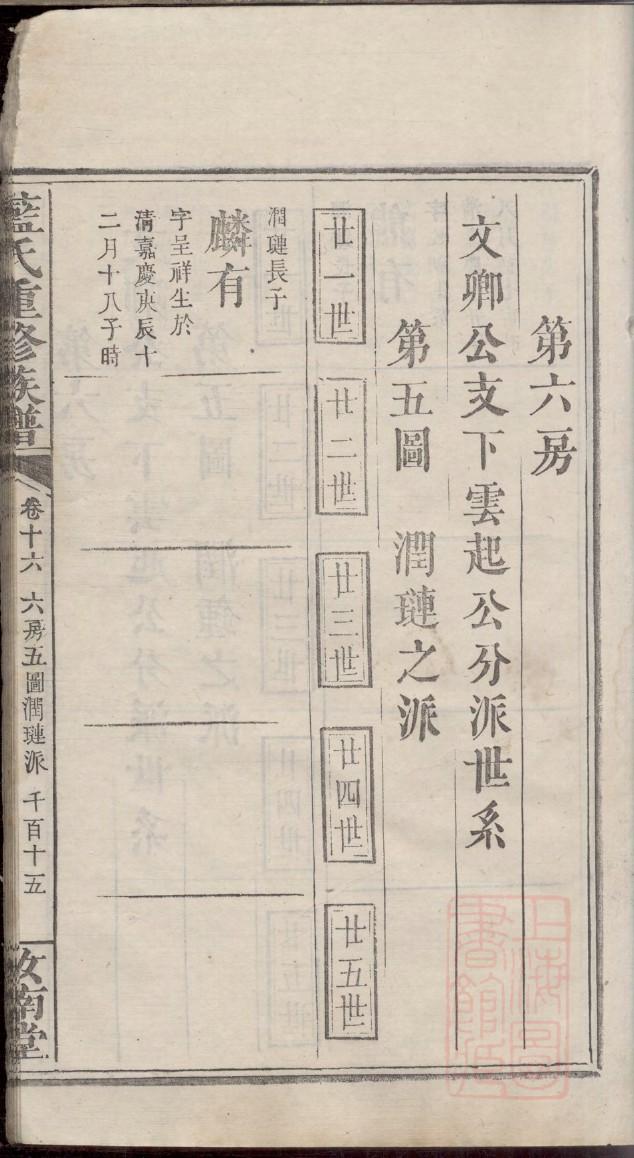 第六房
文卿公支下雲起公分派世系
第五圖　潤璉之派
廿一世
廿二世
廿三世
廿四世
廿五世
潤璉長子
麟有
字呈祥生於
清嘉慶庚辰十
二月十八子時
藍氏重修族譜
卷十六　六房五圖潤璉派　千百十五
汝南堂
上海圖
書館藏